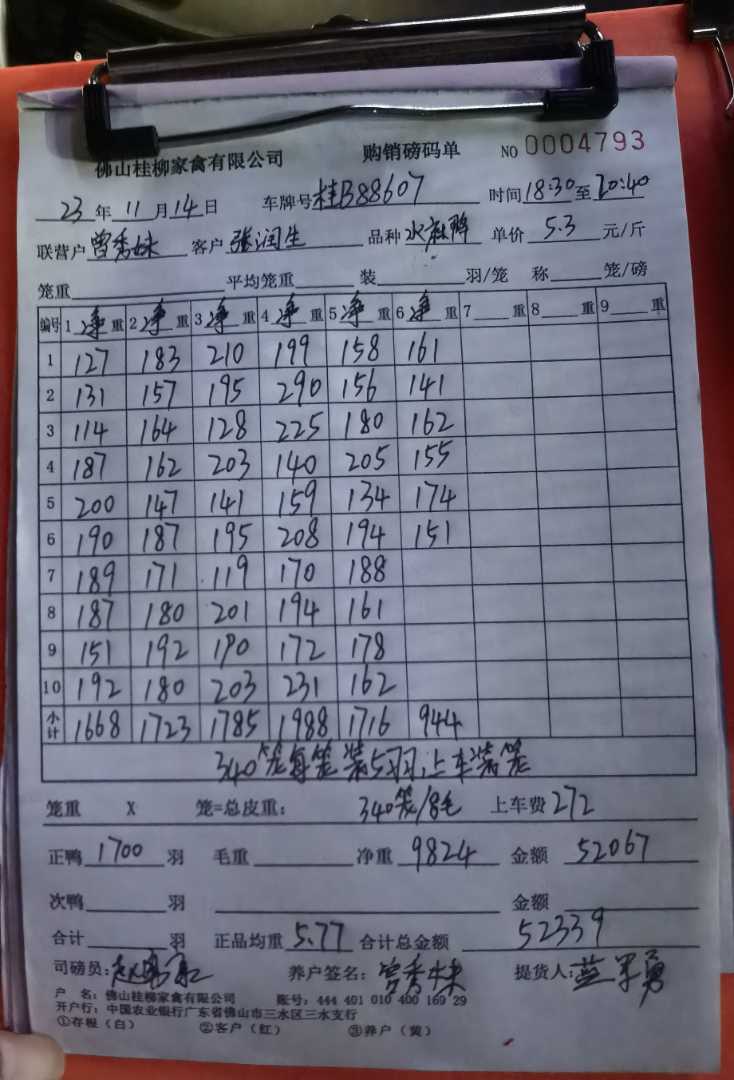 佛山桂柳家禽有限公司 购销磅码单 NO 0004793
23 年 11 月 14 日 车牌号 桂B88607 时间 18:30 至 20:40
联营户 曾秀妹 客户 张润生 品种 水麻鸭 单价 5.3 元/斤
笼重 平均笼重 装 羽/笼 称 笼/磅
编号 1 净 重 2 净 重 3 净 重 4 净 重 5 净 重 6 净 重 7 重 8 重 9 重
1 127 183 210 199 158 161
2 131 157 195 290 156 141
3 114 164 128 225 180 162
4 187 162 203 140 205 155
5 200 147 141 159 134 174
6 190 187 195 208 194 151
7 189 171 119 170 188
8 187 180 201 194 161
9 151 192 190 172 178
10 192 180 203 231 162
小计 1668 1723 1785 1988 1716 944
340笼每笼装5羽,上车装笼
笼重 X 笼=总皮重: 340笼/8毛 上车费 272
正鸭 1700 羽 毛重 净重 9824 金额 52067
次鸭 羽 金额
合计 羽 正品均重 5.77 合计总金额 52339
司磅员: 养户签名: 曾秀妹 提货人: 蓝军勇
户 名: 佛山桂柳家禽有限公司 账号: 444 401 010 400 169 29
开户行: 中国农业银行广东省佛山市三水区三水支行
①存根(白) ②客户(红) ③养户(黄)